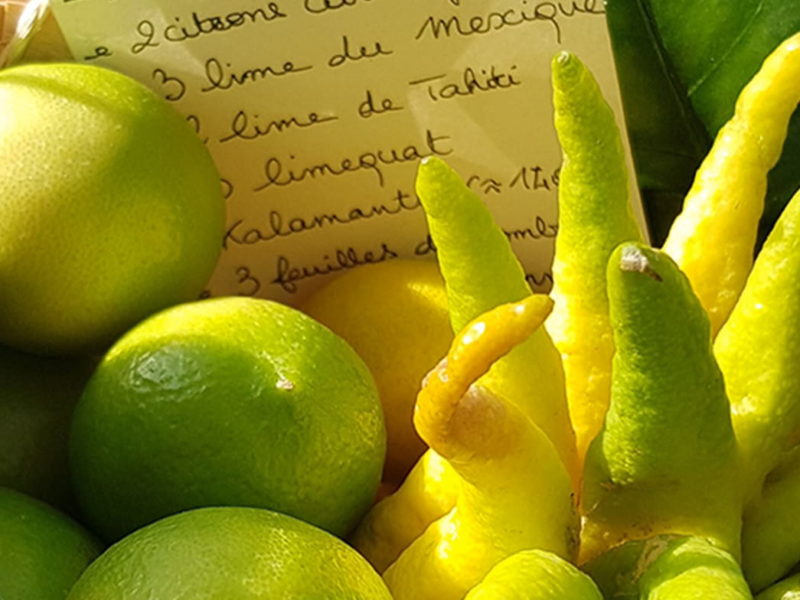 2 citrons
3 lime du mexique
lime de Tahiti
limequat
Kalamant
3 feuilles